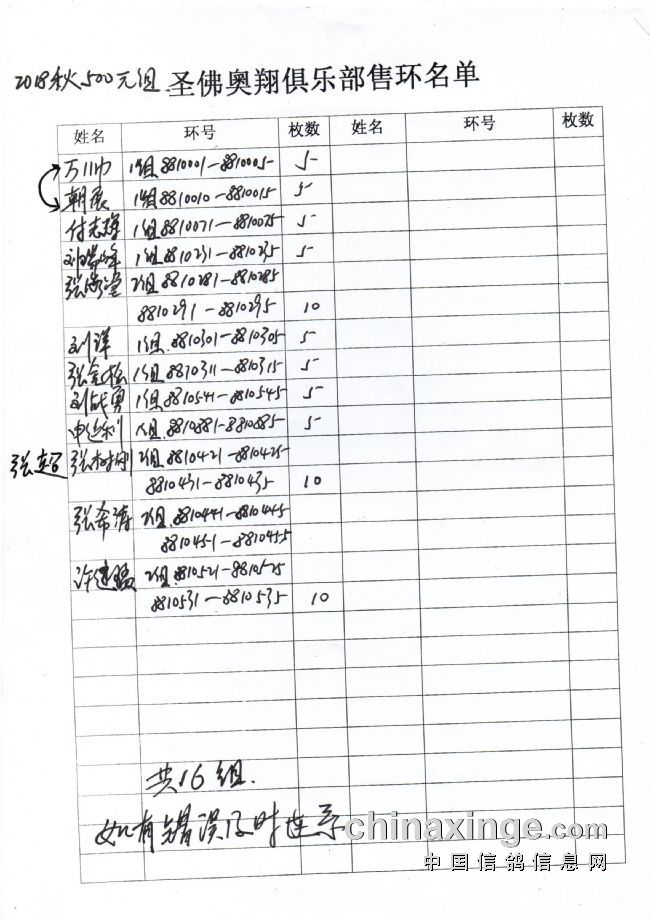 2018秋500元组 圣佛奥翔俱乐部售环名单
姓名 环号 枚数 姓名 环号 枚数
万川巾 1组 8810001—8810005 5
朝展 1组 8810010—8810015 5
付志 1组 8810071—8810075 5
刘 1组 8810231—8810235 5
张 2组 8810281—8810285
8810291—8810295 10
刘洋 1组 8810301—8810305 5
张金松 1组 8810311—8810315 5
刘战勇 1组 8810541—8810545 5
申 1组 8810881—8810885 5
张超 张树刚 2组 8810421—8810425
8810431—8810435 10
张希涛 2组 8810441—8810445
8810451—8810455
许建 2组 8810521—8810525
8810531—8810535 10
共16组.
如有错误及时连系
chinaxinge.com
中国信鸽信息网